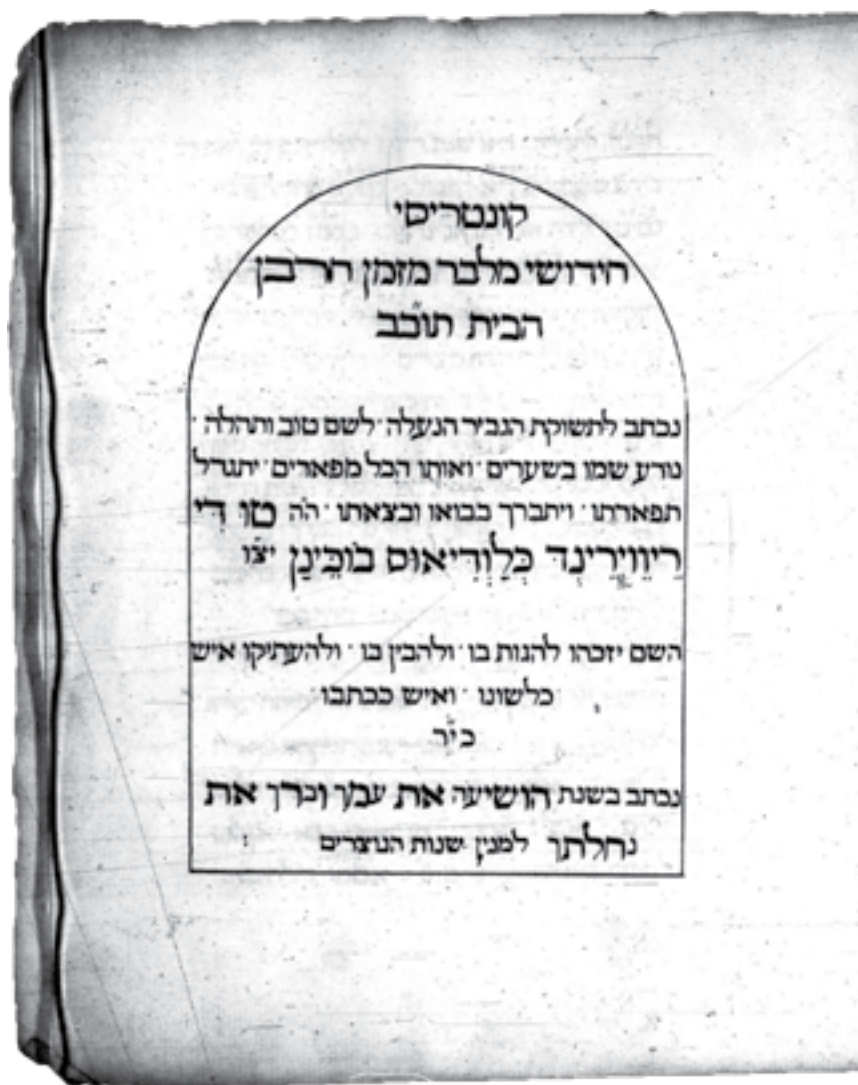 קונטריסי
חידושי מלבר מזמן חרבן
הבית תוב״ב
נכתב לתשוקת הגביר הנעלה · לשם טוב ותהלה ·
נודע שמו בשערים · ואותו הכל מפארים · יתגדל
תפארתו · ויתברך בבואו ובצאתו · ה״ה טו די
רֵיוֵיוֶירֵינְד כְּלַוְדִיאוּס בוּכֵּינַן יצ״ו
השם יזכהו להגות בו · ולהבין בו · ולהעתיקו איש
כלשונו · ואיש ככתבו ·
כי״ר
נכתב בשנת הושיעה את עמך וברך את
נחלתך למנין שנות הנוצרים